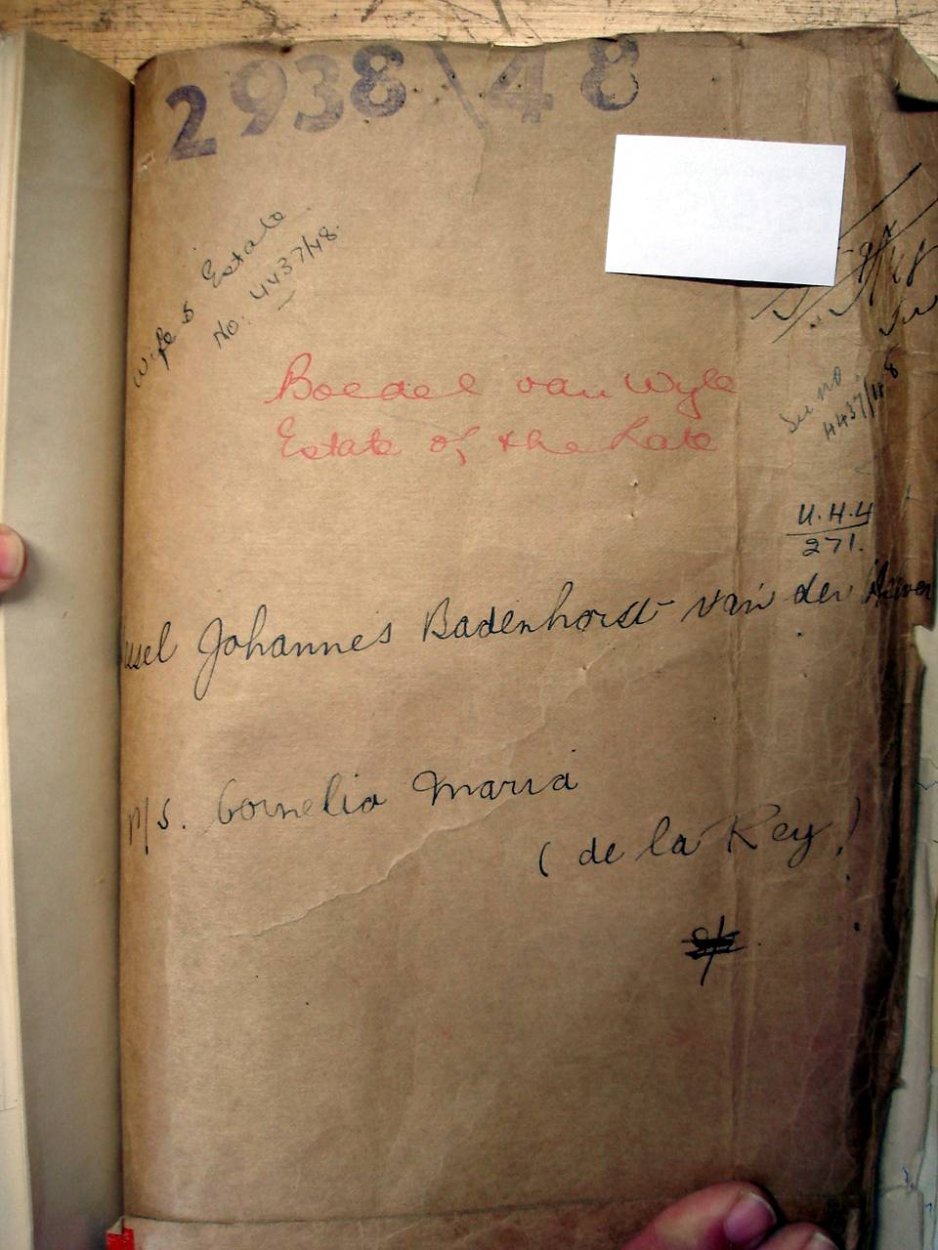 2938\48
Wife's Estate
No. 4437/48.
See no.
4437/48
Boedel van Wyle
Estate of the Late
U.H.4
271.
Johannes Badenhorst van der
n/s. Cornelia Maria
(de la Rey)